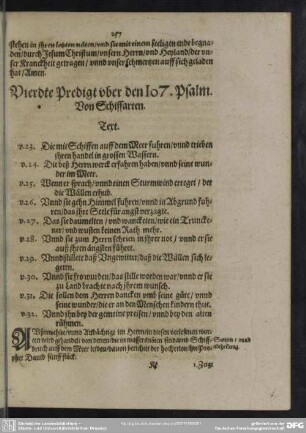 257
stehen in jhren letzten nöten/und sie mit einem seeligen ende begna-
den/durch Jesum Christum/unsern Herrn/und Heyland/der un-
ser Kranckheit getragen/und unser schmertzen auff sich geladen
hat/Amen.
Vierdte Predigt vber den 107. Psalm.
Von Schiffarten.
Text.
v. 23. Die mit Schiffen auff dem Meer fuhren/vnnd trieben
ihren handel in grossen Wassern.
v. 24. Die deß Herrn werck erfahren haben/vnnd seine wun-
der im Meer.
v. 25. Wenn er sprach/vnnd einen Sturmwind erreget/der
die Wällen erhub.
v. 26. Vnnd sie gehn Himmel fuhren/vnd in Abgrund fuh-
ren/das ihre Seele für angst verzagte.
v. 27. Das sie daumelten/vnd wanckten/wie ein Truncke-
ner/vnd wusten keinen Rath mehr.
v. 28. Vnnd sie zum Herrn schrien in jhrer not/vnnd er sie
auß jhren ängsten führet.
v. 29. Vnnd stillete daß Vngewitter/daß die Wällen sich le-
geten.
v. 30. Vnnd sie fro wurden/das stille worden war/vnnd er sie
zu Land brachte nach jhrem wunsch.
v. 31. Die sollen dem Herren dancken vmb seine güte/vnnd
seine wunder/die er an den Menschen kindern thut.
v. 32. Vnnd jhn bey der gemeine preisen/vnnd bey den alten
rühmen.
nen wird gehandelt von denen/die in wassernöten sind
1. Zeigt